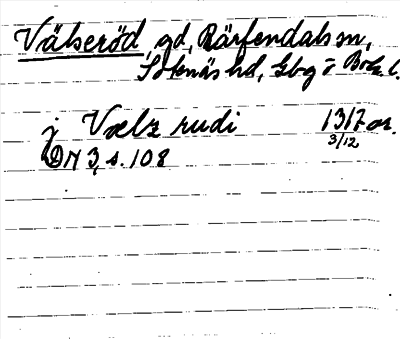 Välseröd, gd, Bärfendals sn,
Sotenäs hd, Gbg o Boh. l.
j Vælz rudi 1317 or.
3/12
DN 3, s. 108